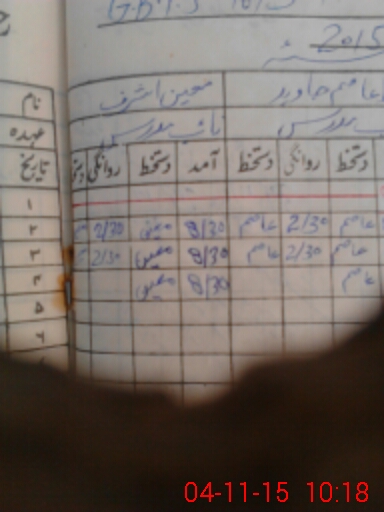 2015
نام معین اشرف عاصم جاوید
عہدہ نائب مدرس مدرس
تاریخ آمد دستخط روانگی دستخط روانگی دستخط
۱
۲ 8/30 معین 2/30 عاصم 2/30 عاصم
۳ 8/30 معین 2/30 عاصم 2/30 عاصم
۴ 8/30 معین عاصم
۵
۶
04-11-15 10:18